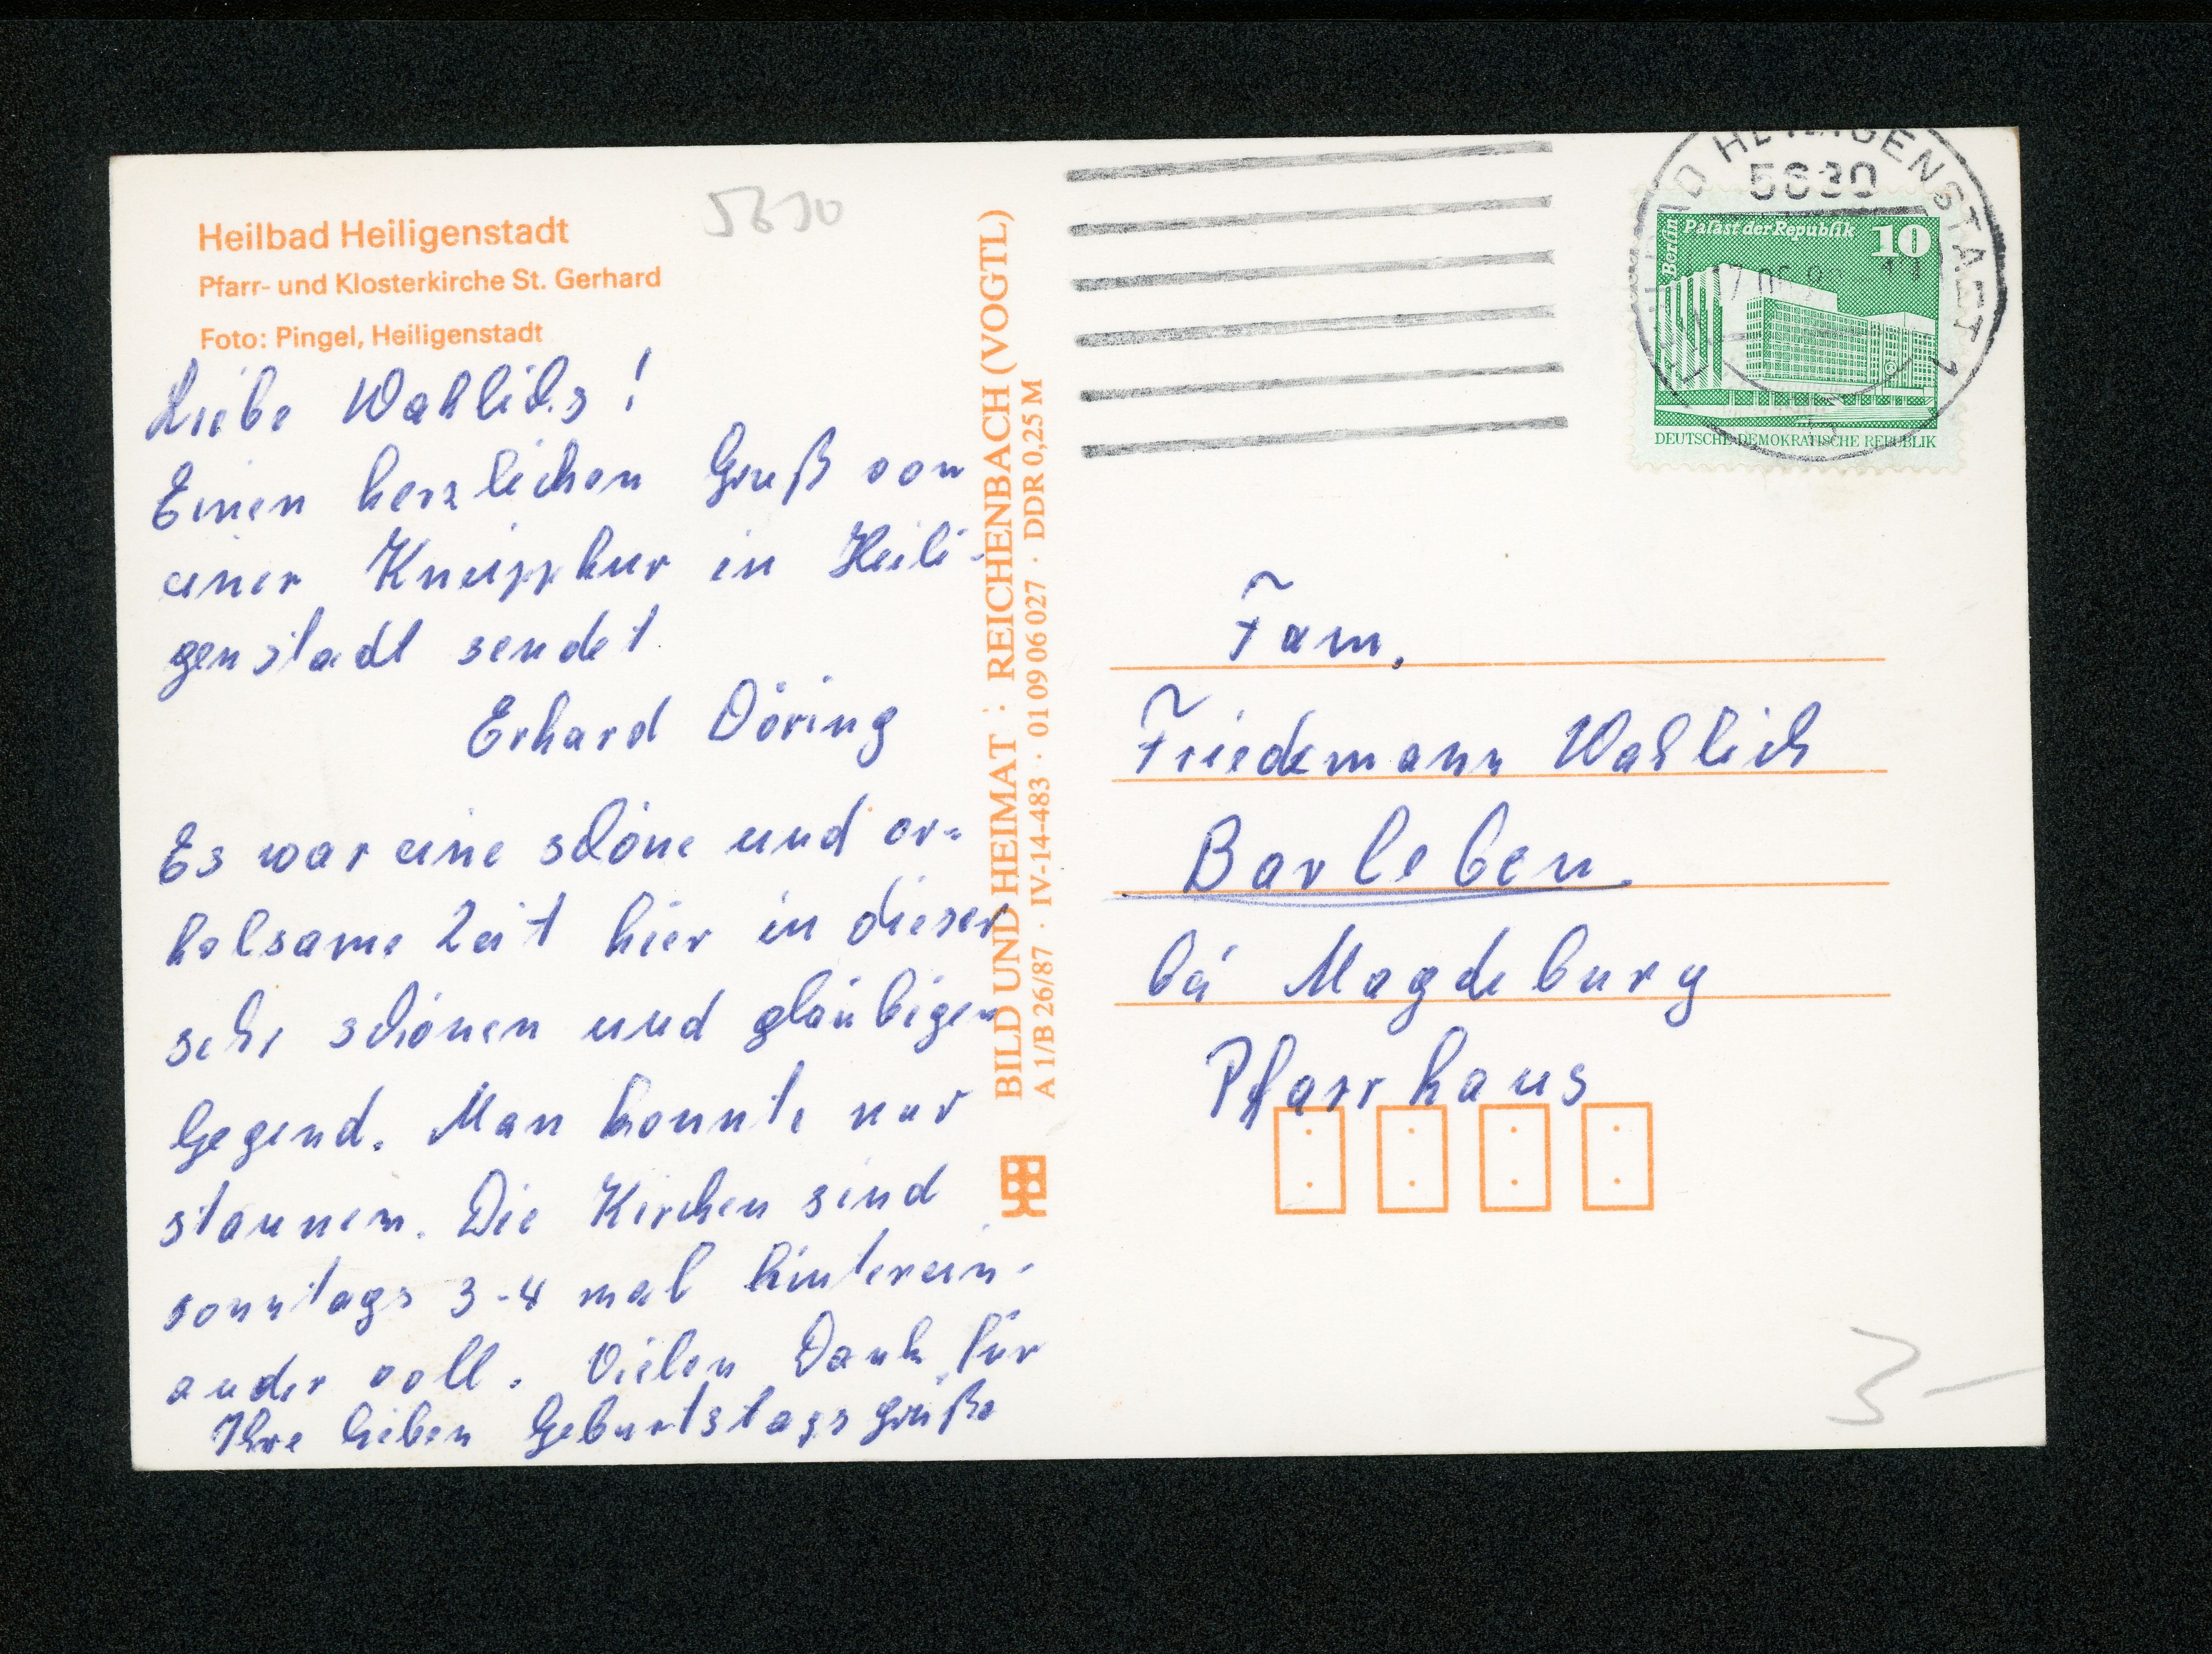 Heilbad Heiligenstadt
Pfarr- und Klosterkirche St. Gerhard
Foto: Pingel, Heiligenstadt
5630
Liebe Wahlichs!
Einen herzlichen Gruß von
einer Kneippkur in Heili-
genstadt sendet
Erhard Döring
Es war eine schöne und er-
holsame Zeit hier in dieser
sehr schönen und gläubigen
Gegend. Man konnte nur
staunen. Die Kirchen sind
sonntags 3-4 mal hinterein-
ander voll. Vielen Dank für
Ihre lieben Geburtstagsgrüße
BILD UND HEIMAT : REICHENBACH (VOGTL)
A 1/B 26/87 · IV-14-483 · 01 09 06 027 · DDR 0,25 M
BAD HEILIGENSTADT 1
5630
Berlin
Palast der Republik
10
DEUTSCHE DEMOKRATISCHE REPUBLIK
Fam.
Friedemann Wahlich
Barleben.
bei Magdeburg
Pfarrhaus
3-